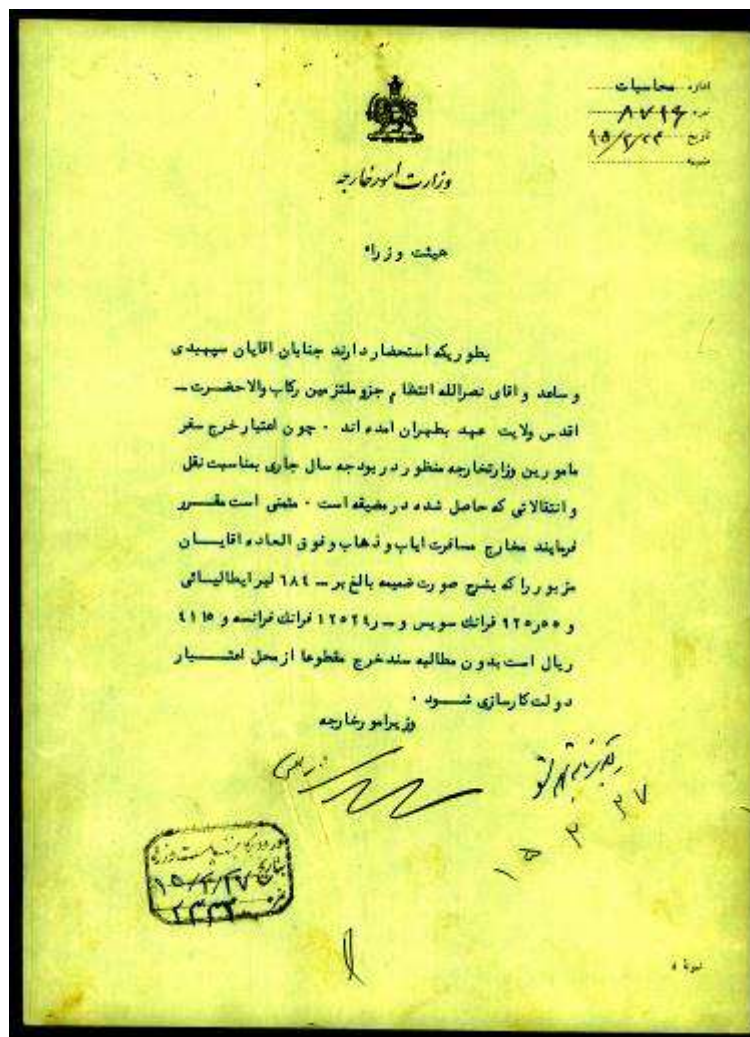 اداره محاسبات
نمره ۸۷۱۶
تاریخ ۱۵/۳/۲۴
ضمیمه
وزارت امور خارجه
هیئت وزراء
بطوریکه استحضار دارند جنابان اقایان سپهبدی
و ساعد و اقای نصرالله انتظام جزو ملتزمین رکاب والاحضرت ـ
اقدس ولایت عهد بطهران امده اند ۰ چون اعتبار خرج سفر
مامورین وزارتخارجه منظور در بودجه سال جاری بمناسبت نقل
و انتقالاتی که حاصل شده در مضیقه است ۰ متمنی است مقــرر
فرمایند مخارج مسافرت ایاب و ذهاب و فوق العاده اقایــان
مزبور را که بشرح صورت ضمیمه بالغ بر ـ ٦٨٤ لیر ایطالیائی
و ۹۲۵ر۵۵ فرانك سویس و ـ ر۱۲۵۲۴ فرانك فرانسه و ٤١٦٥
ریال است بدون مطالبه سند خرج مقطوعا از محل اعتـــبار
دولت کارسازی شـــود ۰
وزیر امور خارجه
۱۵ ۳ ۲۷
بتاریخ ۱۵/۳/۲۷
نمره ۲۳۳۲
نمونهٔ ۵